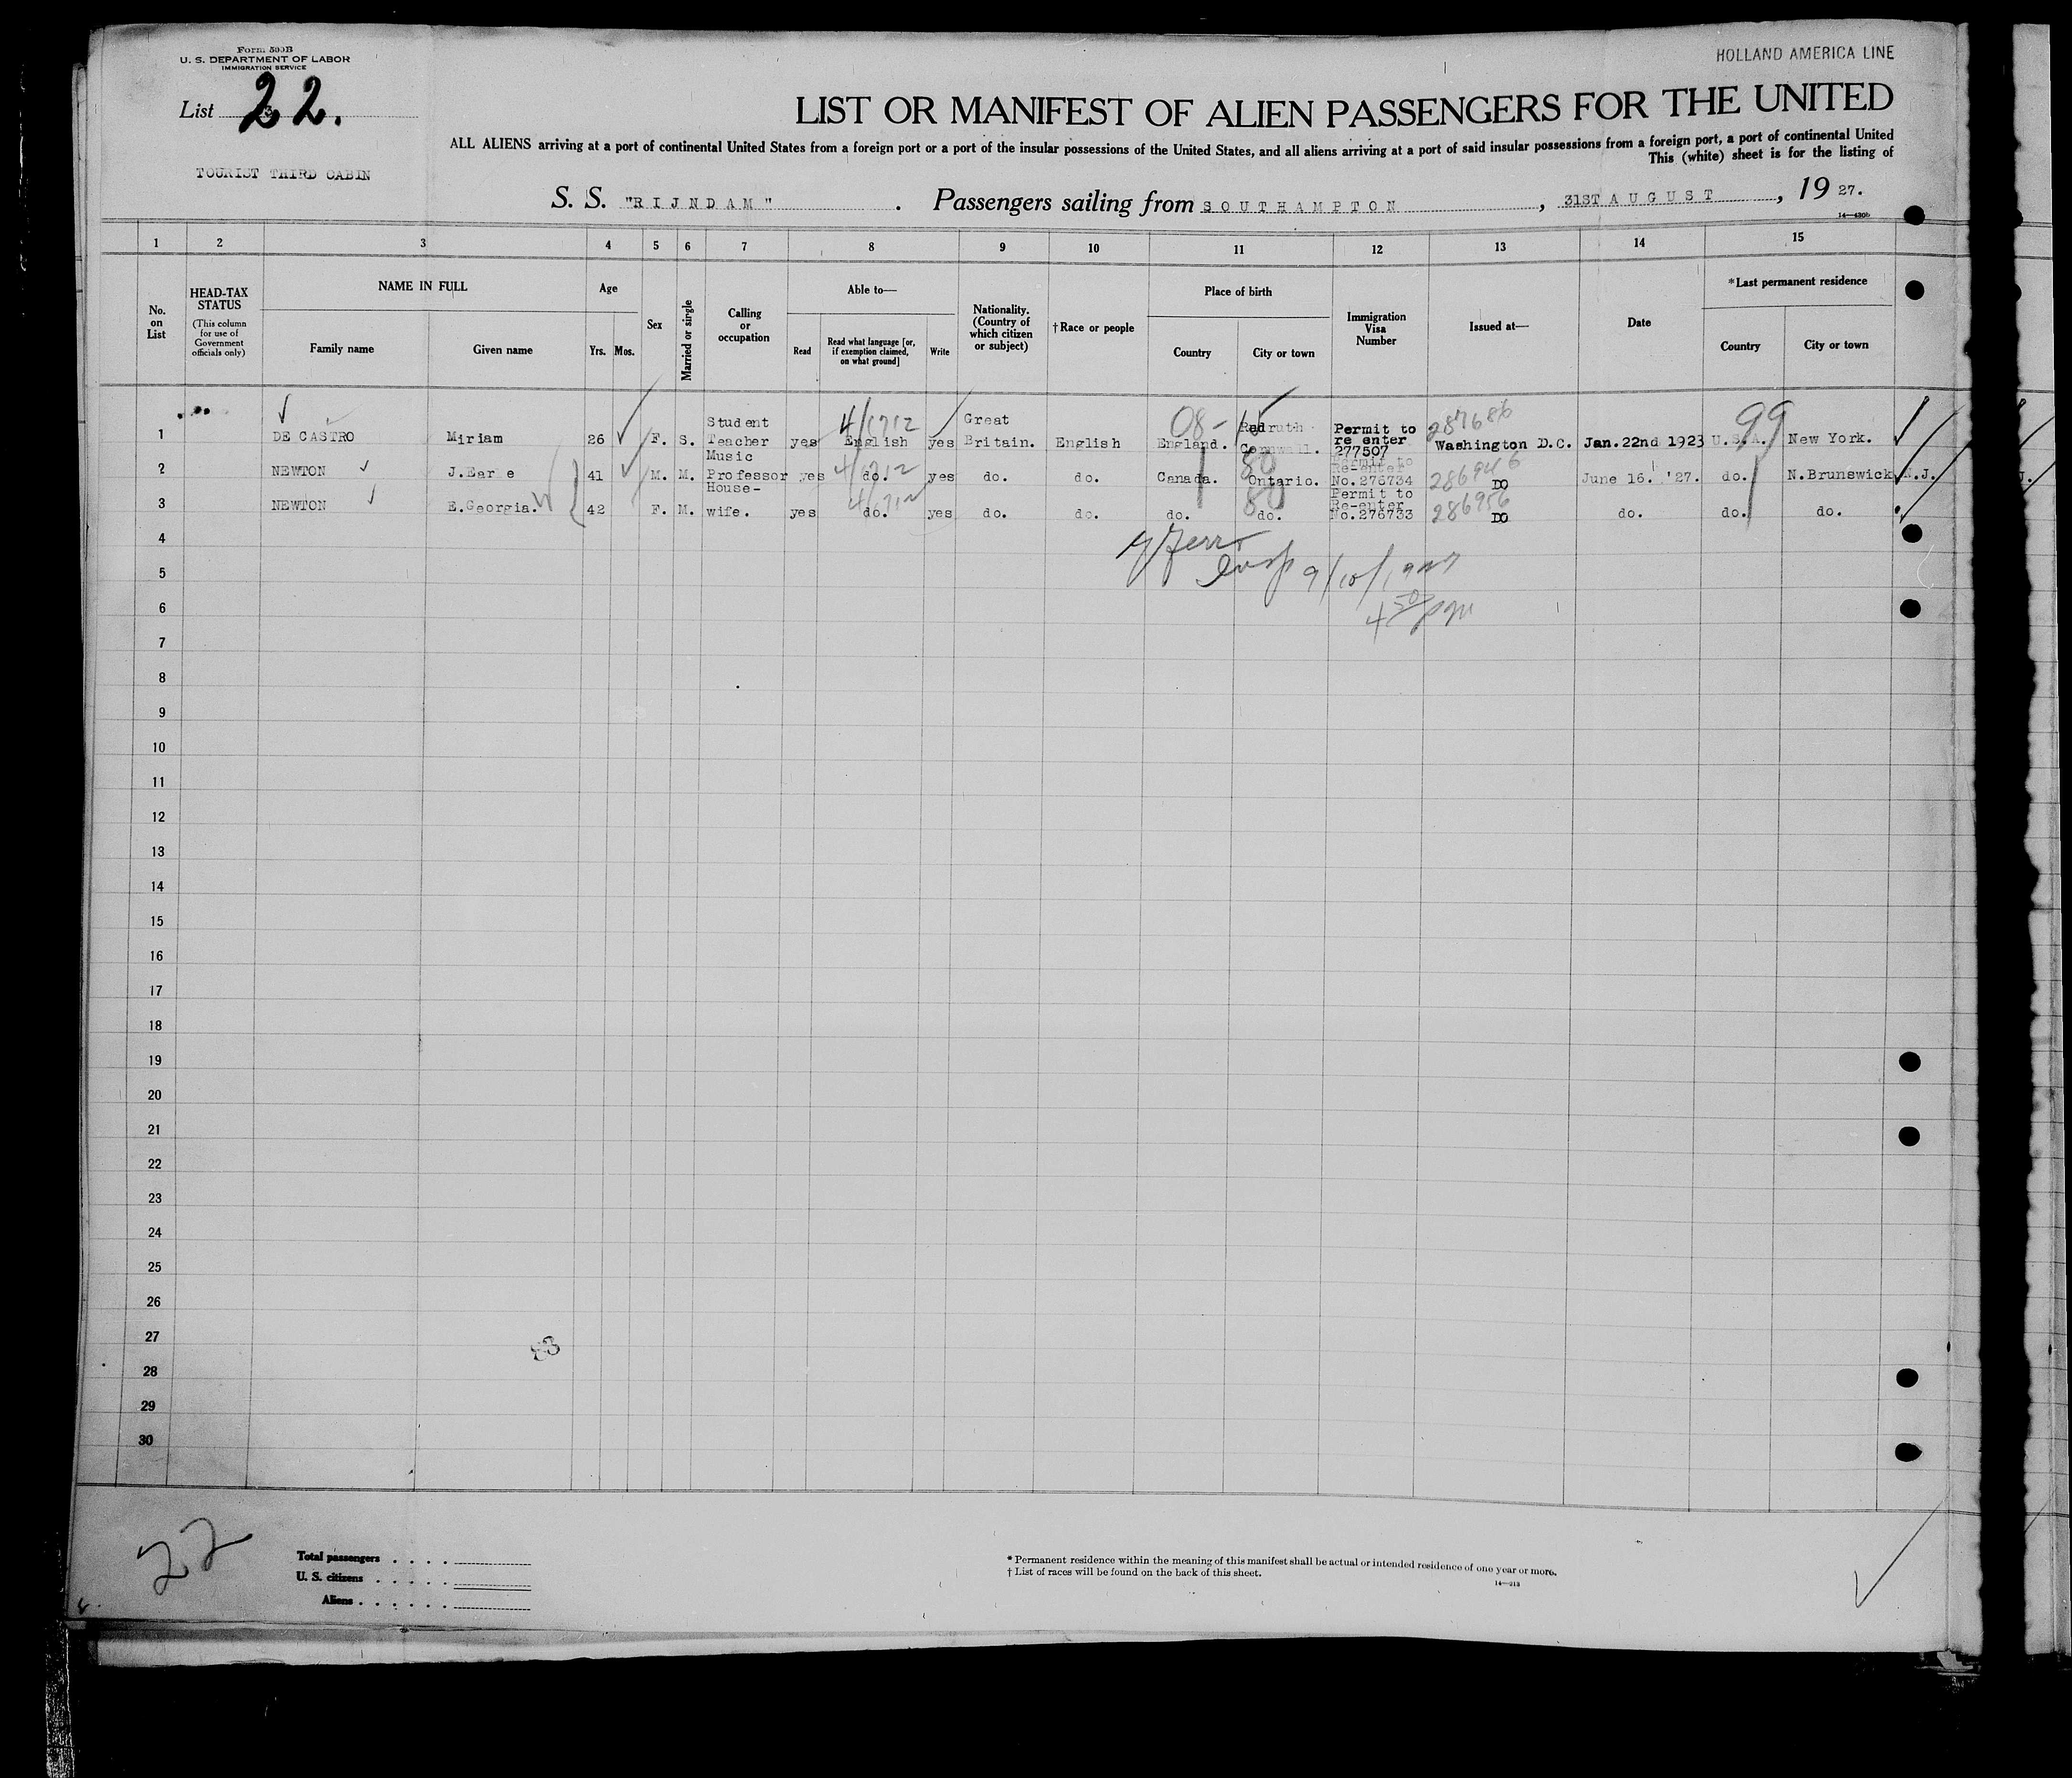 Form 500B
U. S. DEPARTMENT OF LABOR
IMMIGRATION SERVICE
HOLLAND AMERICA LINE
List 22.
LIST OR MANIFEST OF ALIEN PASSENGERS FOR THE UNITED
ALL ALIENS arriving at a port of continental United States from a foreign port or a port of the insular possessions of the United States, and all aliens arriving at a port of said insular possessions from a foreign port, a port of continental United
This (white) sheet is for the listing of
TOURIST THIRD CABIN
S. S. "RIJNDAM" . Passengers sailing from SOUTHAMPTON, 31ST AUGUST, 19 27.
14—430b
1 2 3 4 5 6 7 8 9 10 11 12 13 14 15
No. on List
HEAD-TAX STATUS
(This column for use of Government officials only)
NAME IN FULL
Family name
Given name
Age
Yrs. Mos.
Sex
Married or single
Calling or occupation
Able to—
Read
Read what language [or, if exemption claimed, on what ground]
Write
Nationality. (Country of which citizen or subject)
†Race or people
Place of birth
Country
City or town
Immigration Visa Number
Issued at—
Date
*Last permanent residence
Country
City or town
1 DE CASTRO Miriam 26 F. S. Student Teacher yes English yes Great Britain. English England. Redruth Cornwall. Permit to re enter 277507 Washington D.C. Jan.22nd 1923 U.S.A. New York.
4/1712 08- 287686 99
2 NEWTON J.Ear e 41 M. M. Music Professor yes do. yes do. do. Canada. Ontario. Permit to Re-enter No.276734 DO June 16. '27. do. N.Brunswick N.J.
4/1712 80 286946
3 NEWTON E.Georgia. 42 F. M. House-wife. yes do. yes do. do. do. do. Permit to Re-enter No.276733 DO do. do. do.
4/1712 80 286956
4
5
9/10/1927
6
4 50 pm
7
8
9
10
11
12
13
14
15
16
17
18
19
20
21
22
23
24
25
26
27
28
29
30
22
Total passengers . . . .
U. S. citizens . . . . .
Aliens . . . . . .
* Permanent residence within the meaning of this manifest shall be actual or intended residence of one year or more.
† List of races will be found on the back of this sheet.
14—213